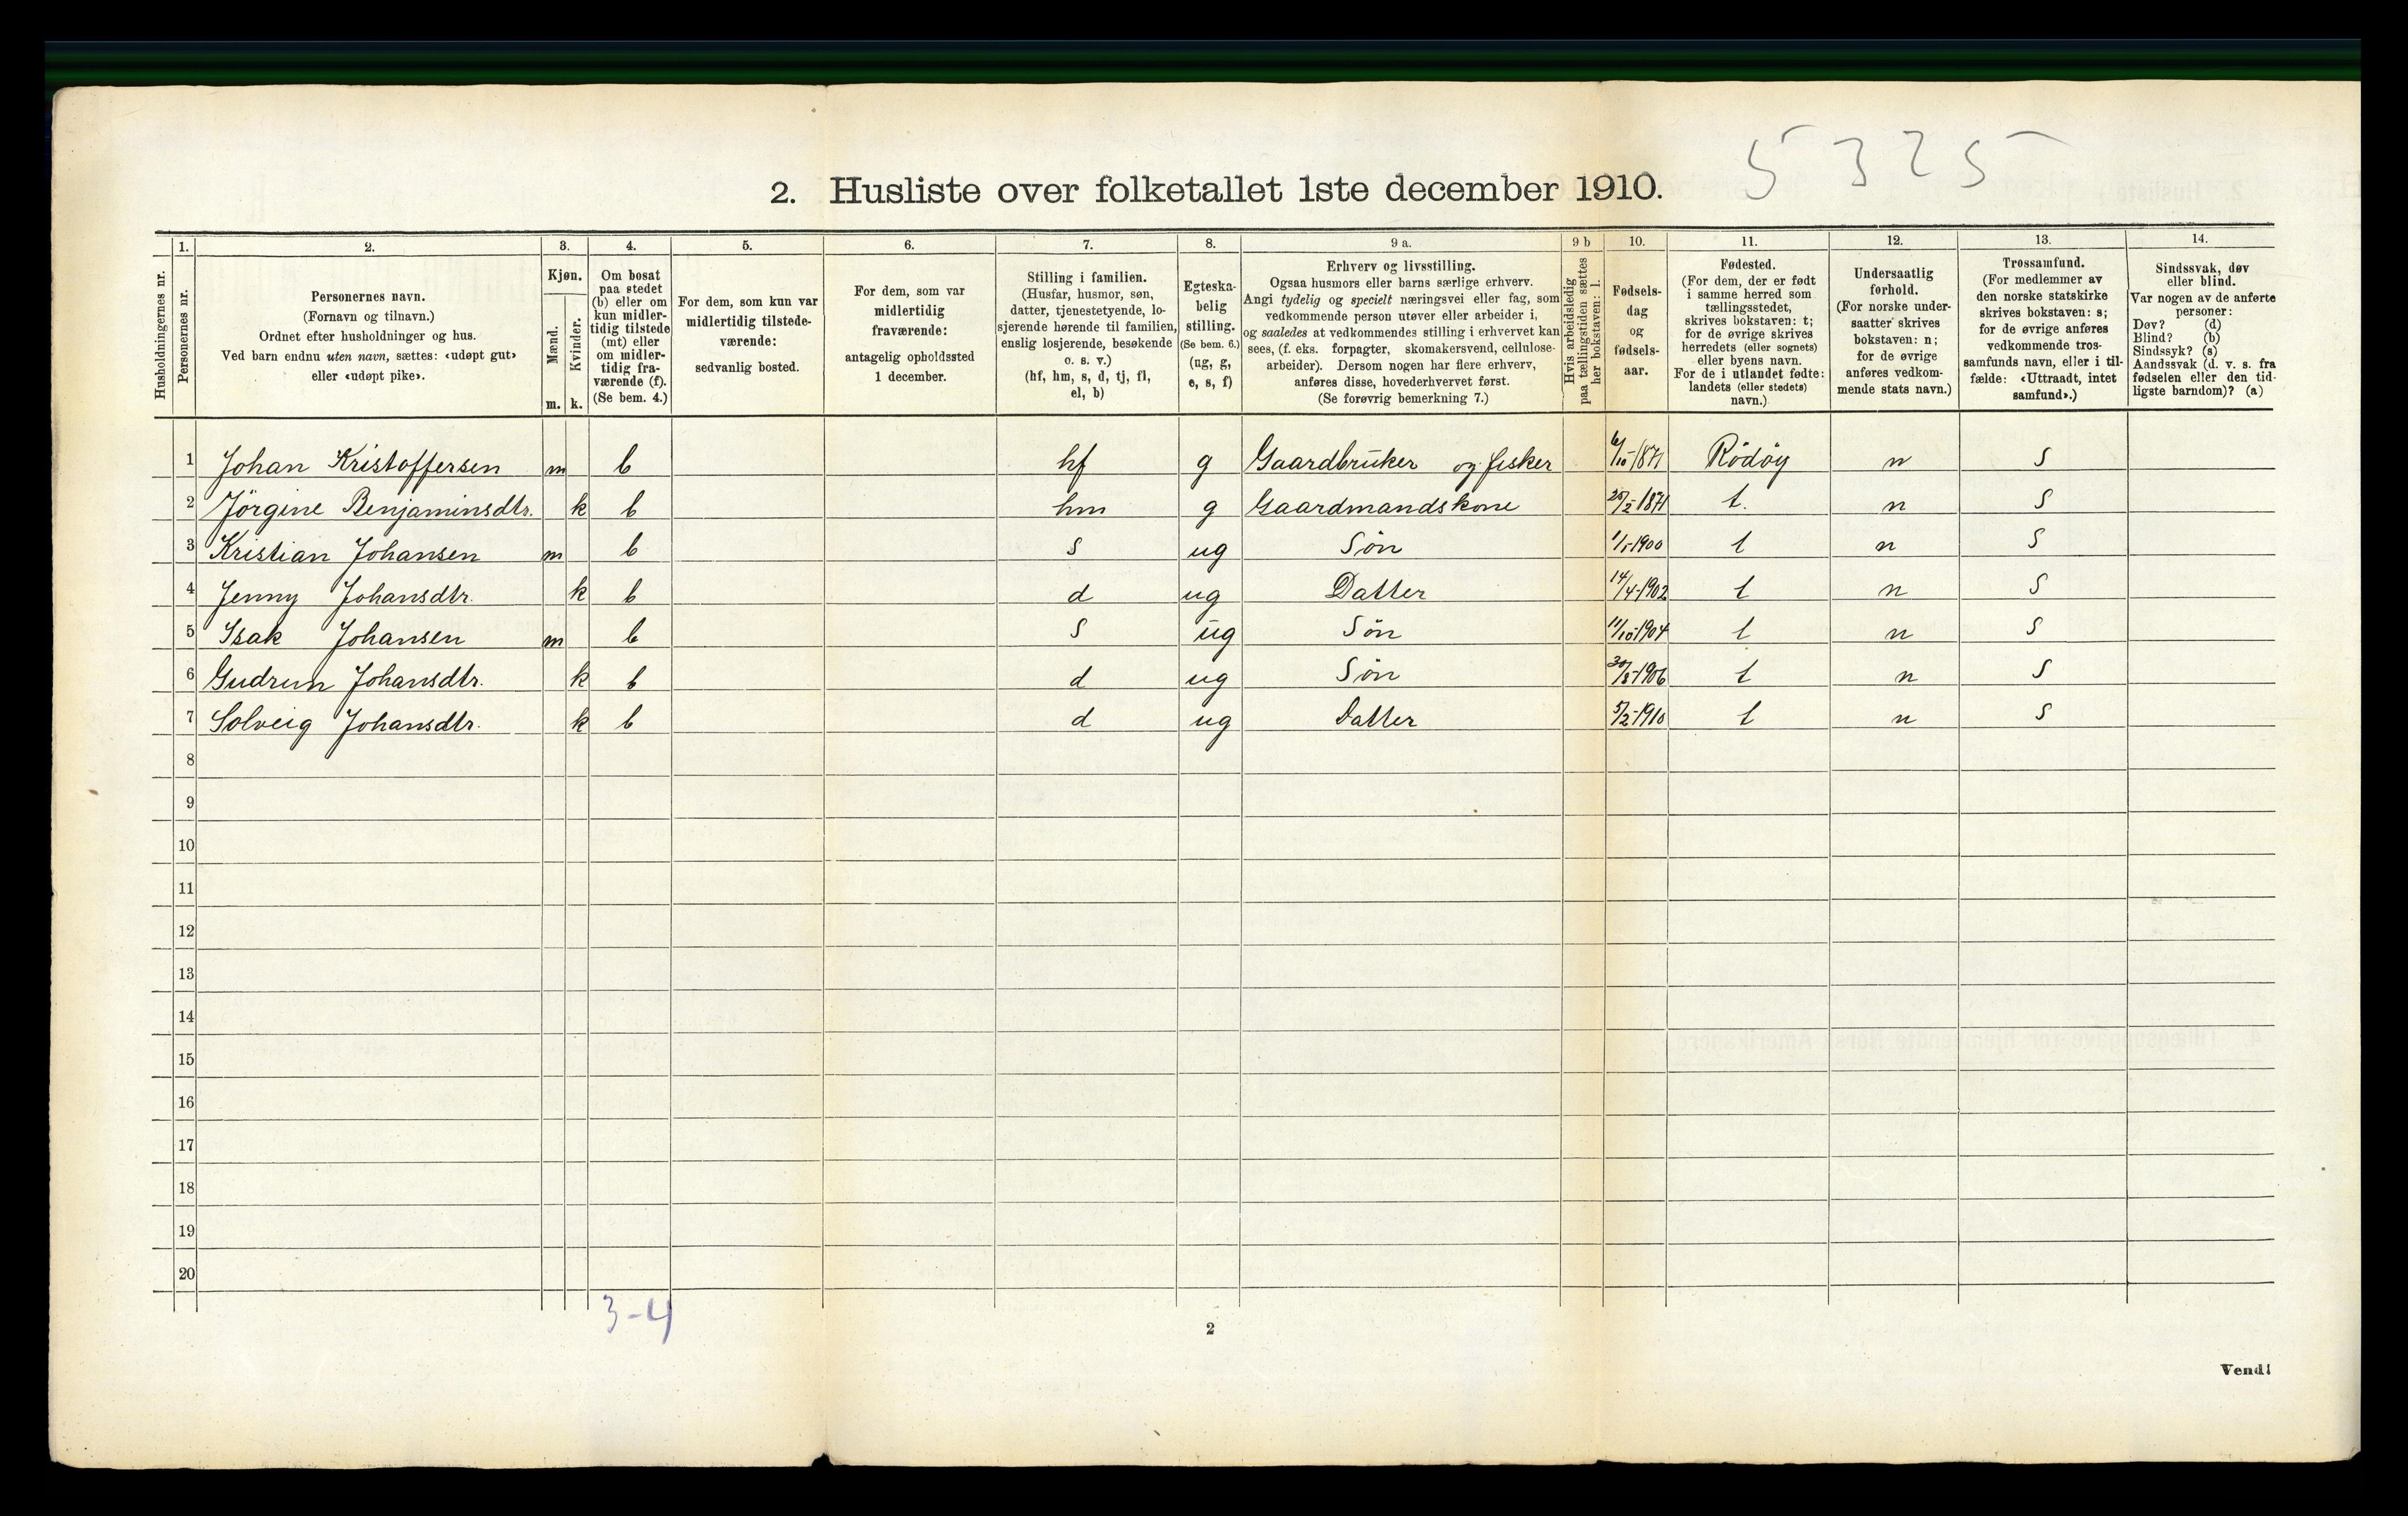 5325
2. Husliste over folketallet 1ste december 1910.
Husholdningernes nr.
1.
Personernes nr.
2.
Personernes navn.
(Fornavn og tilnavn.)
Ordnet efter husholdninger og hus.
Ved barn endnu uten navn, sættes: «udøpt gut»
eller «udøpt pike».
3.
Kjøn.
Mænd.
Kvinder.
m. k.
4.
Om bosat
paa stedet
(b) eller om
kun midler-
tidig tilstede
(mt) eller
om midler-
tidig fra-
værende (f).
(Se bem. 4.)
5.
For dem, som kun var
midlertidig tilstede-
værende:
sedvanlig bosted.
6.
For dem, som var
midlertidig
fraværende:
antagelig opholdssted
1 december.
7.
Stilling i familien.
(Husfar, husmor, søn,
datter, tjenestetyende, lo-
sjerende hørende til familien,
enslig losjerende, besøkende
o. s. v.)
(hf, hm, s, d, tj, fl,
el, b)
8.
Egteska-
belig
stilling.
(Se bem. 6.)
(ug, g,
e, s, f)
9 a.
Erhverv og livsstilling.
Ogsaa husmors eller barns særlige erhverv.
Angi tydelig og specielt næringsvei eller fag, som
vedkommende person utøver eller arbeider i,
og saaledes at vedkommendes stilling i erhvervet kan
sees, (f. eks. forpagter, skomakersvend, cellulose-
arbeider). Dersom nogen har flere erhverv,
anføres disse, hovederhvervet først.
(Se forøvrig bemerkning 7.)
9 b
Hvis arbeidsledig
paa tællingstiden sættes
her bokstaven: l.
10.
Fødsels-
dag
og
fødsels-
aar.
11.
Fødested.
(For dem, der er født
i samme herred som
tællingsstedet,
skrives bokstaven: t;
for de øvrige skrives
herredets (eller sognets)
eller byens navn.
For de i utlandet fødte:
landets (eller stedets)
navn.)
12.
Undersaatlig
forhold.
(For norske under-
saatter skrives
bokstaven: n;
for de øvrige
anføres vedkom-
mende stats navn.)
13.
Trossamfund.
(For medlemmer av
den norske statskirke
skrives bokstaven: s;
for de øvrige anføres
vedkommende tros-
samfunds navn, eller i til-
fælde: «Uttraadt, intet
samfund».)
14.
Sindssvak, døv
eller blind.
Var nogen av de anførte
personer:
Døv? (d)
Blind? (b)
Sindssyk? (s)
Aandssvak (d. v. s. fra
fødselen eller den tid-
ligste barndom)? (a)
1 Johan Kristoffersen m b hf g Gaardbruker og fisker 6/10-1871 Rödöy n s
2 Jörgine Benjaminsdtr. k b hm g Gaardmandskone 25/2-1871 t. n s
3 Kristian Johansen m b s ug Sön 1/5-1900 t n s
4 Jenny Johansdtr. k b d ug Datter 14/4-1902 t n s
5 Isak Johansen m b s ug Sön 11/10-1904 t n s
6 Gudrun Johansdtr. k b d ug Sön 30/8-1906 t n s
7 Solveig Johansdtr. k b d ug Datter 5/2-1910 t n s
8
9
10
11
12
13
14
15
16
17
18
19
20
3-4
2
Vend!